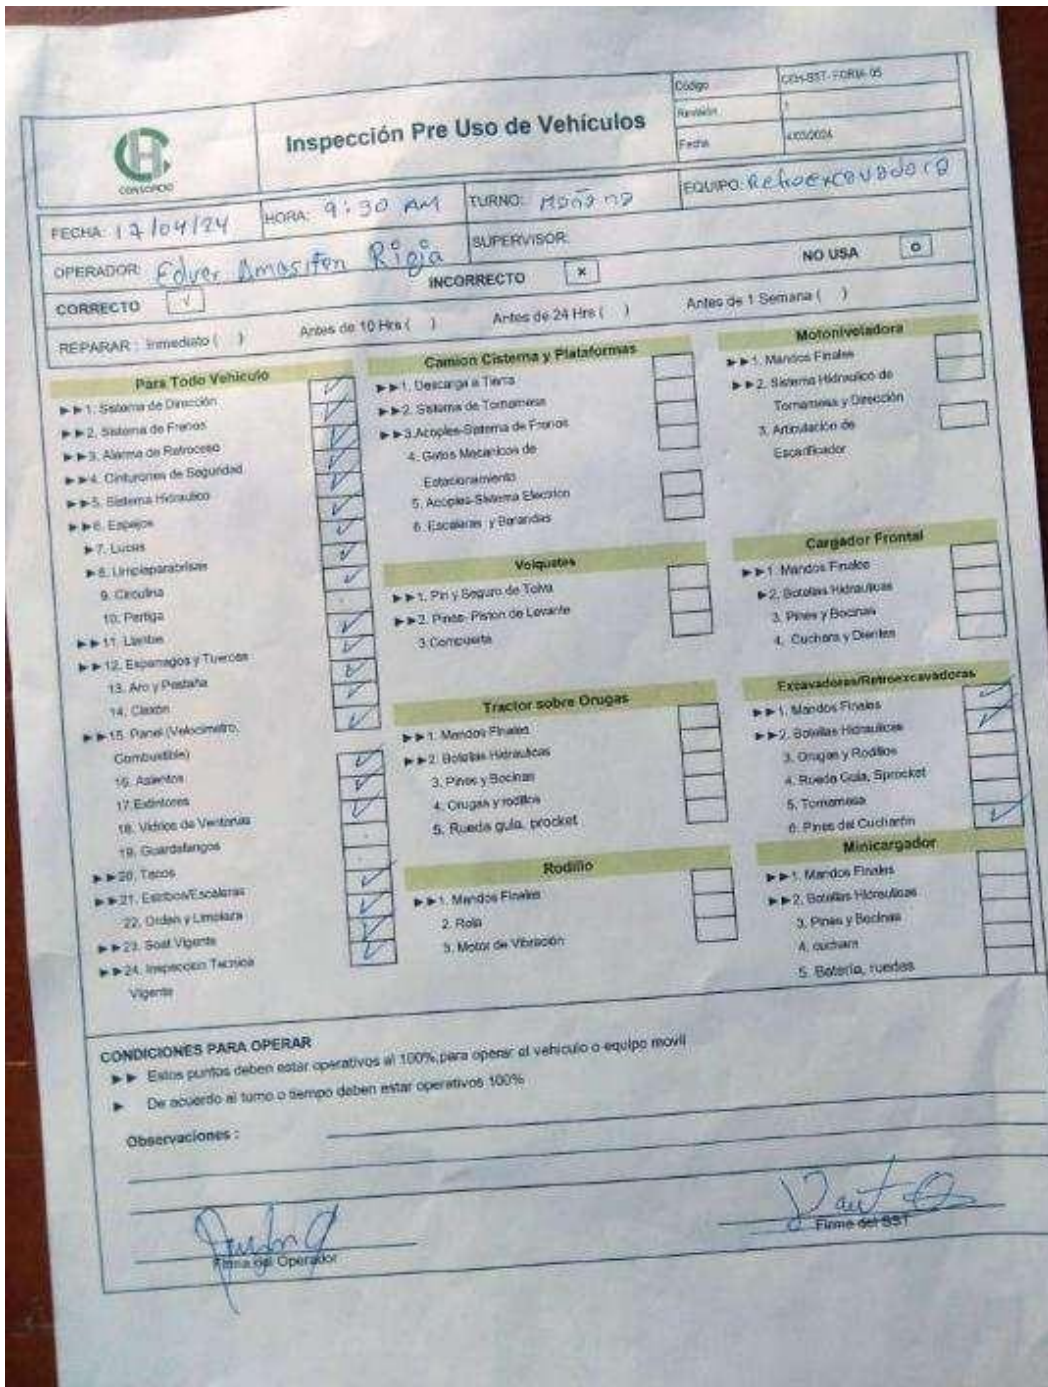 CH
CONSORCIO
Inspección Pre Uso de Vehículos
Código
CCH-SST-FORM-05
Revisión
1
Fecha
4/03/2024
FECHA: 17/04/24
HORA: 9:30 AM
TURNO: Mañana
EQUIPO: Retroexcavadora
OPERADOR: Edver Amasifen Rioja
SUPERVISOR:
CORRECTO √
INCORRECTO x
NO USA o
REPARAR : Inmediato ( ) Antes de 10 Hrs ( ) Antes de 24 Hrs ( ) Antes de 1 Semana ( )
Para Todo Vehiculo
►►1. Sistema de Dirección √
►►2. Sistema de Frenos √
►►3. Alarma de Retroceso √
►►4. Cinturones de Seguridad √
►►5. Sistema Hidraulico √
►►6. Espejos √
►7. Luces √
►8. Limpiaparabrisas √
9. Circulina √
10. Pertiga
►►11. Llantas √
►►12. Esparragos y Tuercas √
13. Aro y Pestaña √
14. Claxón √
►►15. Panel (Velocimetro, √
Combustible)
16. Asientos √
17. Extintores √
18. Vidrios de Ventanas √
19. Guardafangos
►►20. Tacos
►►21. Estribos/Escaleras √
22. Orden y Limpieza √
►►23. Soat Vigente √
►►24. Inspección Tecnica √
Vigente
Camion Cisterna y Plataformas
►►1. Descarga a Tierra
►►2. Sistema de Tornamesa
►►3.Acoples-Sistema de Frenos
4. Gatos Mecanicos de
Estacionamiento
5. Acoples-Sistema Electrico
6. Escaleras y Barandas
Volquetes
►►1. Pin y Seguro de Tolva
►►2. Pines- Piston de Levante
3.Compuerta
Tractor sobre Orugas
►►1. Mandos Finales
►►2. Botellas Hidraulicas
3. Pines y Bocinas
4. Orugas y rodillos
5. Rueda guia, procket
Rodillo
►►1. Mandos Finales
2. Rola
3. Motor de Vibración
Motoniveladora
►►1. Mandos Finales
►►2. Sistema Hidraulico de
Tornamesa y Dirección
3. Articulación de
Escarificador
Cargador Frontal
►►1. Mandos Finales
►2. Botellas Hidraulicas
3. Pines y Bocinas
4. Cuchara y Dientes
Excavadoras/Retroexcavadoras
►►1. Mandos Finales √
►►2. Botellas Hidraulicas √
3. Orugas y Rodillos
4. Rueda Guia, Sprocket
5. Tornamesa
6. Pines del Cucharón √
Minicargador
►►1. Mandos Finales
►►2. Botellas Hidraulicas
3. Pines y Bocinas
4. cuchara
5. Batería, ruedas
CONDICIONES PARA OPERAR
►► Estos puntos deben estar operativos al 100% para operar el vehículo o equipo movil
► De acuerdo al turno o tiempo deben estar operativos 100%
Observaciones :
Firma del Operador
Firma del SST